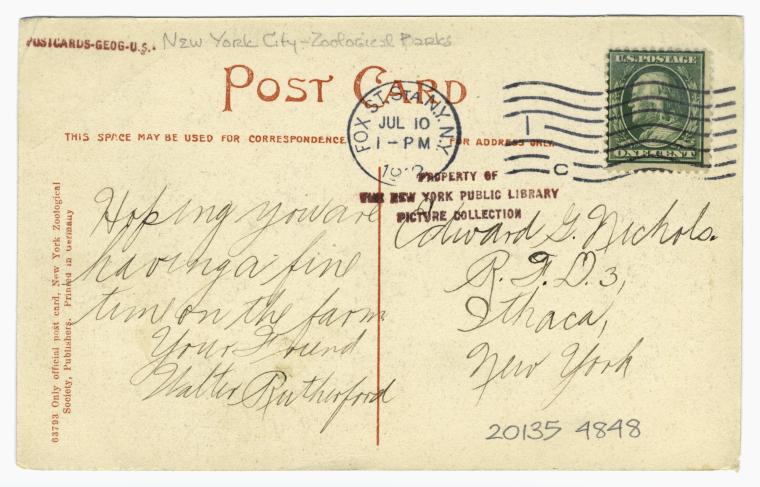 POSTCARDS-GEOG-U.S. New York City-Zoological Parks
POST CARD
THIS SPACE MAY BE USED FOR CORRESPONDENCE
FOR ADDRESS ONLY
FOX ST. STA. N.Y. N.Y.
JUL 10
1-PM
1
C
U.S. POSTAGE
ONE CENT
PROPERTY OF
THE NEW YORK PUBLIC LIBRARY
PICTURE COLLECTION
Hoping you are
having a fine
time on the farm
Your Friend
Walter Rutherford
Edward G. Nichols.
R. F. D. 3,
Ithaca,
New York
20135 4848
63793 Only official post card, New York Zoological
Society, Publishers. Printed in Germany